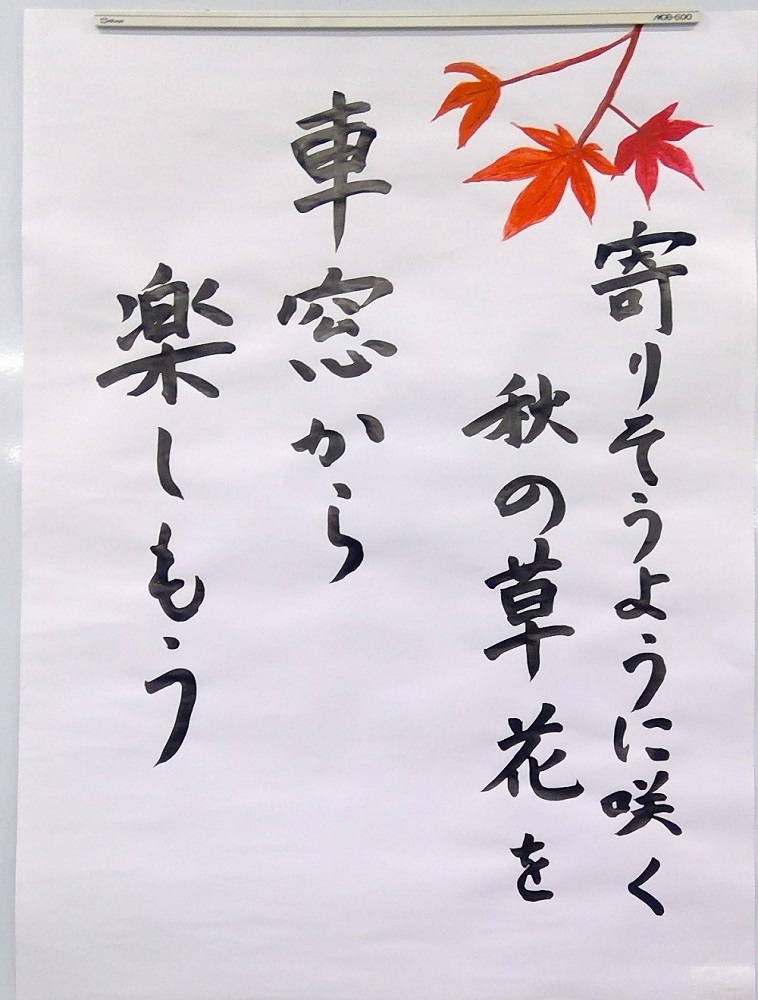 寄りそうように咲く
秋の草花を
車窓から
楽しもう
MCB-600